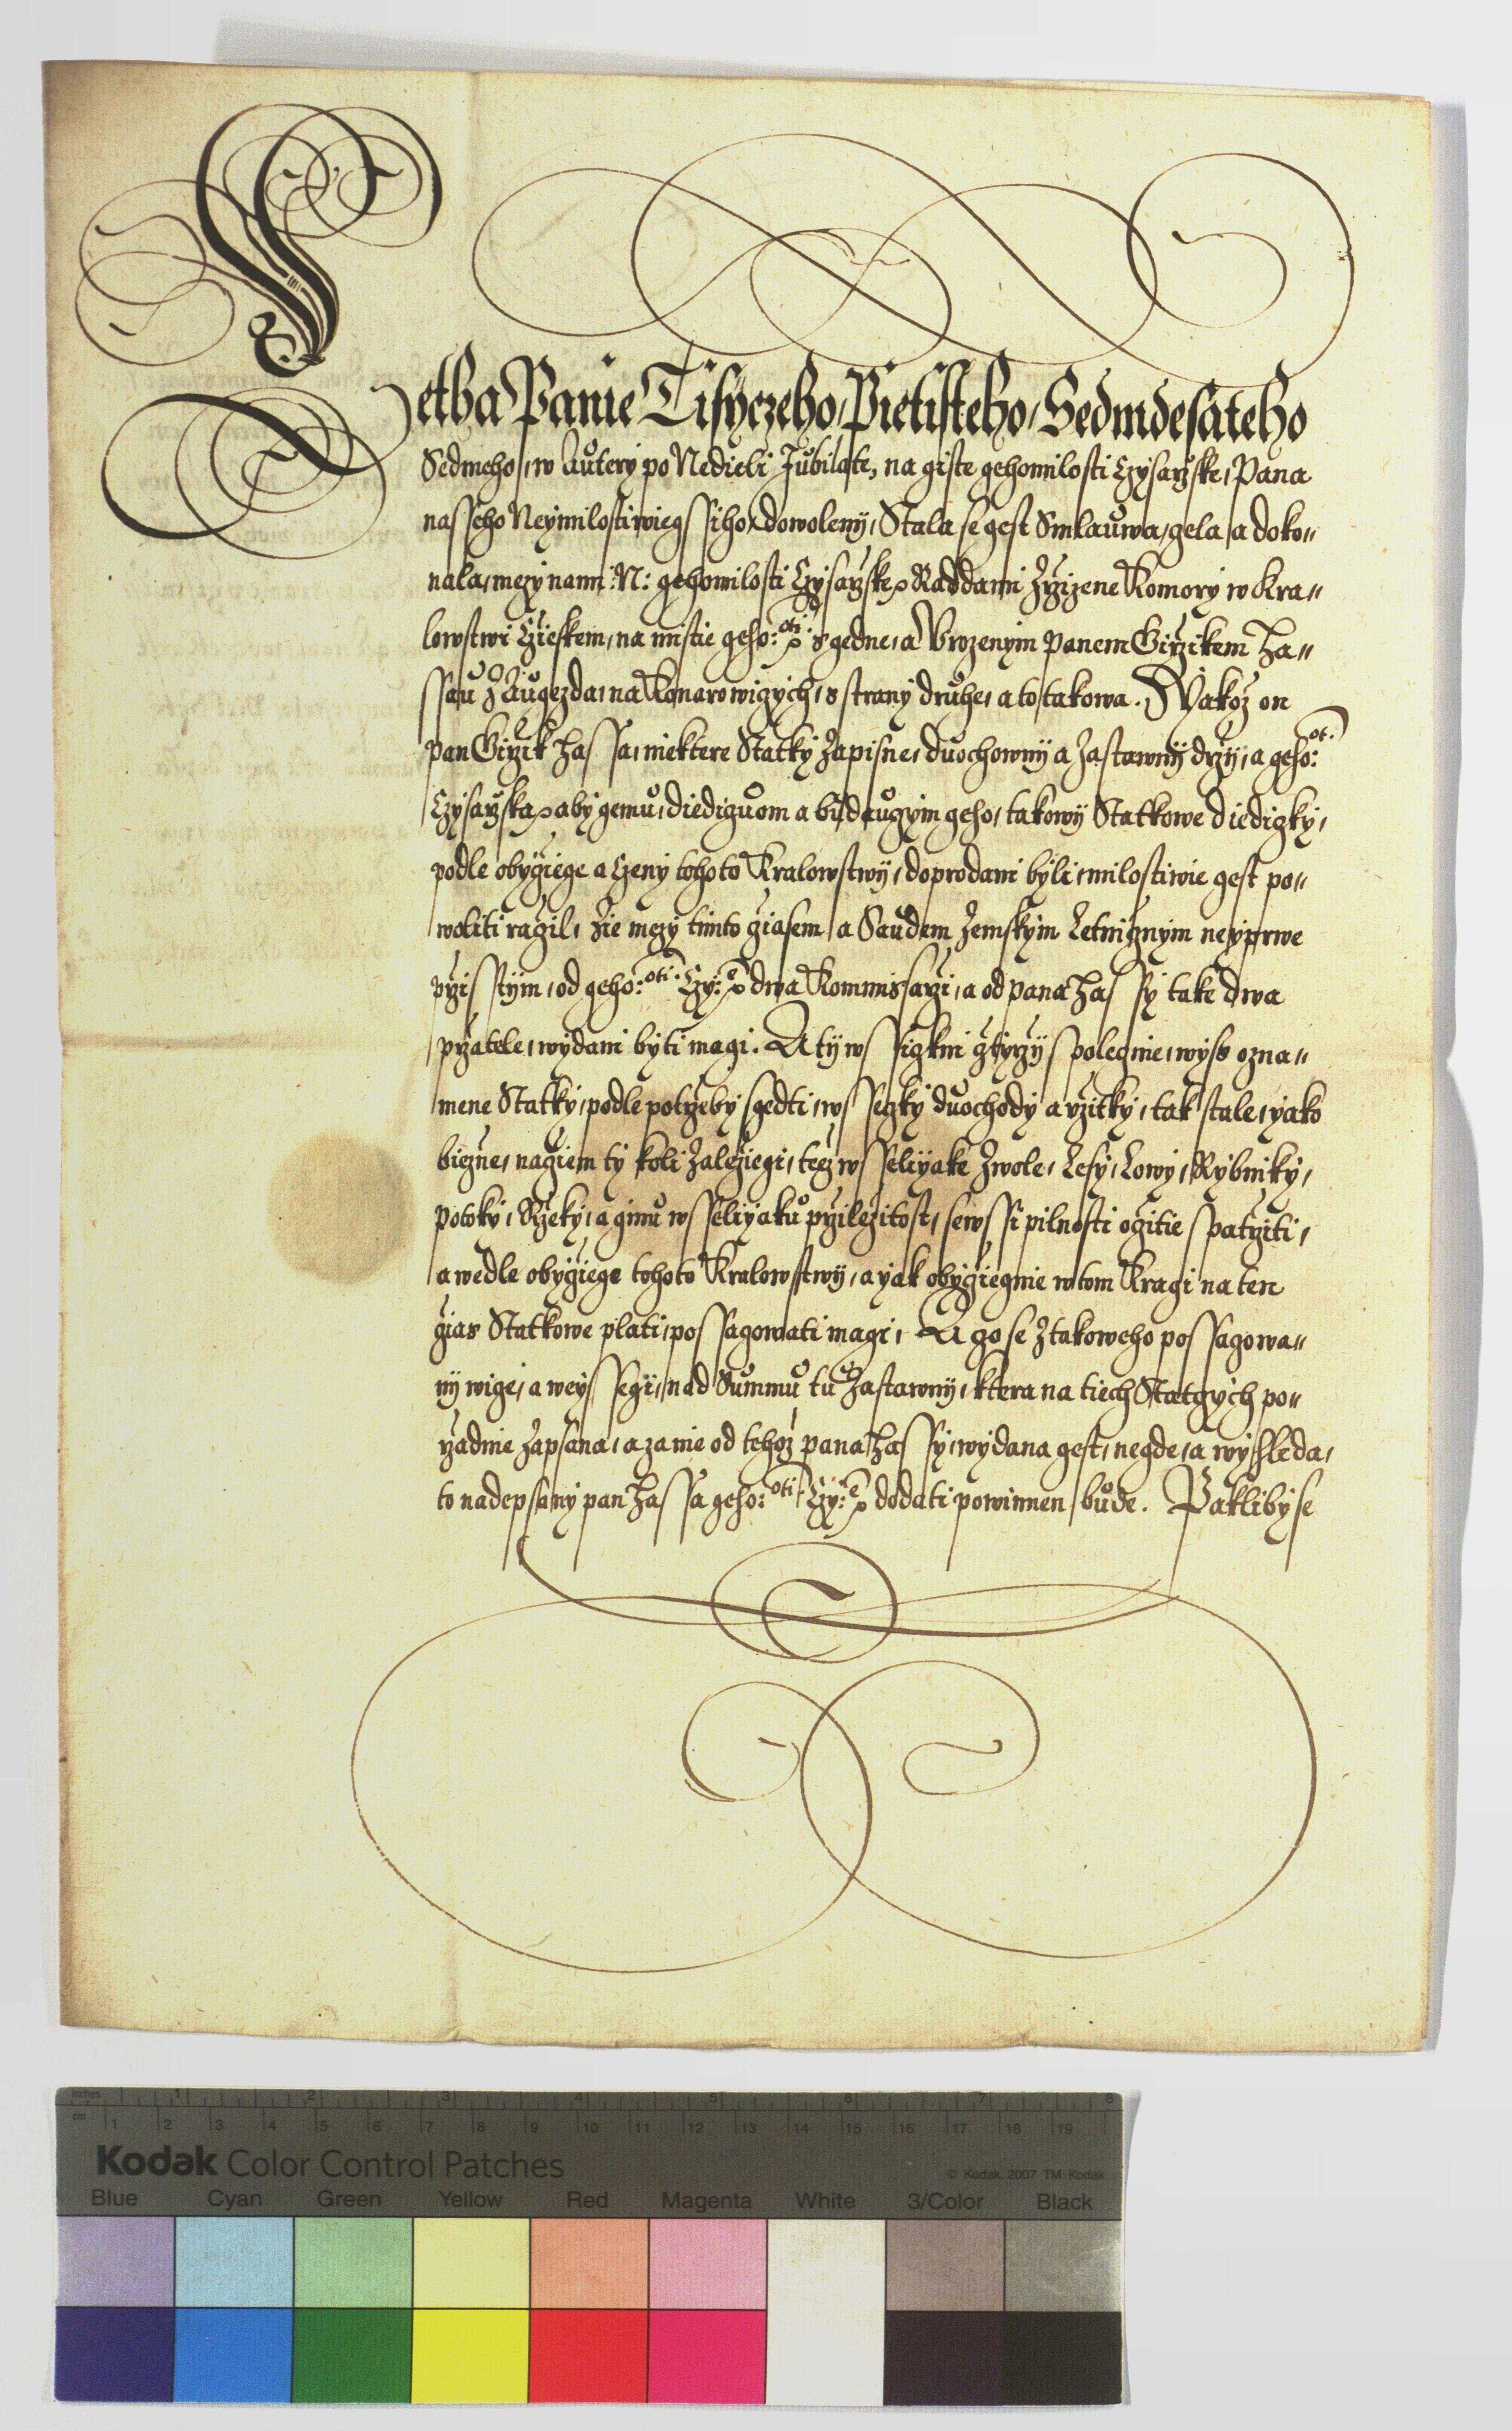 Letha Panie Tisyczeho, Pietisteho, Sedmdesateho
Sedmeho, w Autery po Nedieli Jubilate, na giste gehomilosti Czysarzske, Pana
nasseho Neymilostiwiegssiho dowoleny, Stala se gest Smlauwa, gela a doko„
nala, mezy nami: N: gehomilosti Czysarzske Raddami Zrzizene Komory w Kra„
lowstwi Czieskem, na mistie geho: oti: s gedne, a Vrozenym panem Girzikem Has„
ssau z Augezda, na Konarowigych, s strany druhe, a to takowa. Yakoz on
pan Girzik Hassa, niektere Statky Zapisne, duochowny a Zastawny drzy, a geho: ot:
Czysarzska abygemu, diediczuom a buduczym geho, takowy Statkowe diediczky,
podle obyczege a Czeny tohoto Kralowstwy, doprodani byli, milostiwie gest po„
woliti raczil, Zie mezy timto cziasem a Saudem Zemskym Letnicznym neyprwe
przisstym, od geho: oti: Czy: e dwa Kommissarzi, a od pana Hassy take dwa
przatele, wydani byti magi. A ty wssickni cztyrzy spolecznie, wyss ozna„
mene Statky, podle potrzeby sgedti, wsseczky duochody a vzitky, tak stale, yako
biezne, naczem ty koli Zaleziegi, tez wsseliyake Zwole, Lesy, Lowy, Rybniky,
potoky, Rzeky, a ginu wsseliyaku przilezitost, sewssi pilnosti oczitie spatrziti,
a wedle obyczege tohoto Kralowstwy, a yak obyczegnie w tom Kragi na ten
czias Statkowe plati, possaczowati magi, A czo se Ztakoweho possaczowa„
ny wicze, a weyssegi, nad Summu tu Zastawny, ktera na tiech Statczych po„
rzadnie Zapsana, a zanie od tehoz pana Hassy, wydana gest, negde, a wyhleda,
to nadepsany pan Hassa geho: oti: Czy: e dodati powinnen bude. Paklibyse
inches 1 2 3 4 5 6 7 8
cm 1 2 3 4 5 6 7 8 9 10 11 12 13 14 15 16 17 18 19
Kodak Color Control Patches
© Kodak, 2007 TM: Kodak
Blue Cyan Green Yellow Red Magenta White 3/Color Black